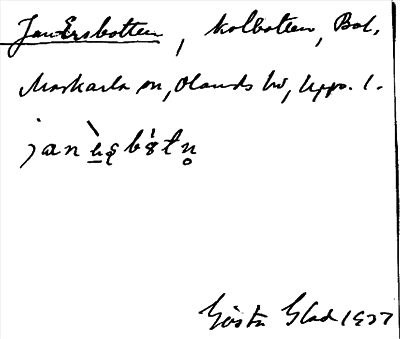 Jan-Ersbotten, kolbotten, Bol,
Markarla sn, Olands hd, Upps. l.
Gösta Glad 1927